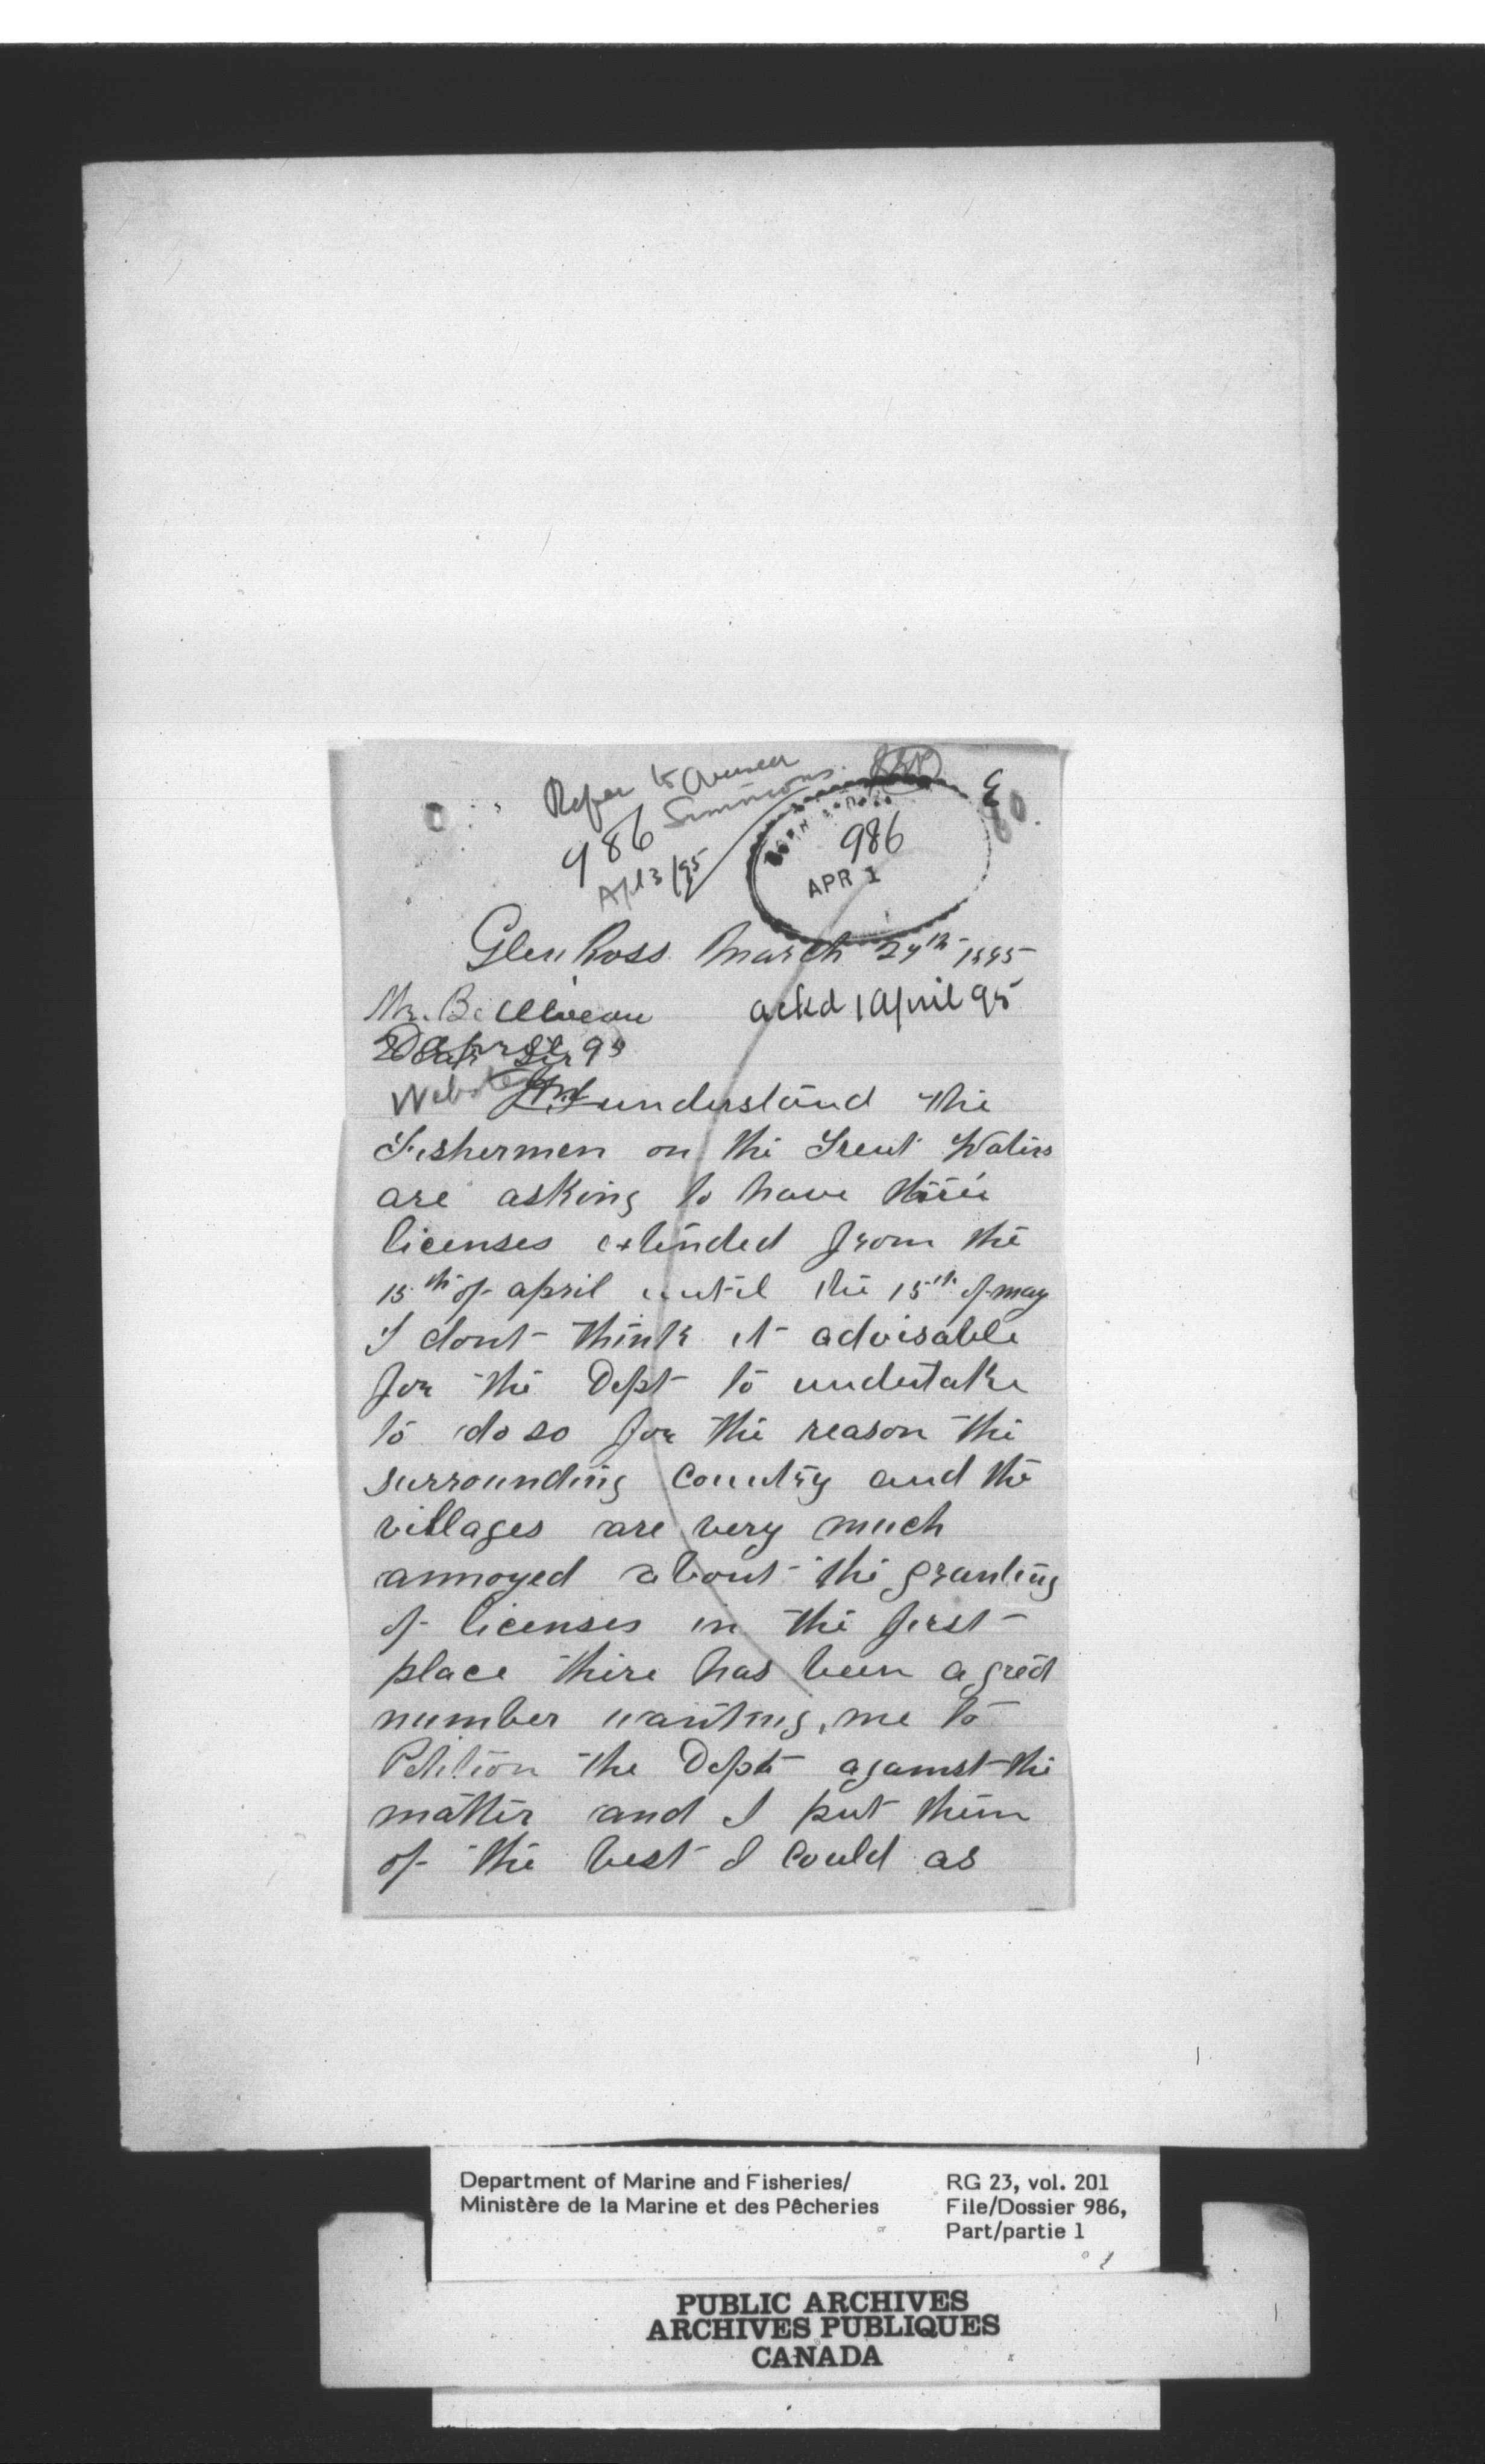 Refer to Overseer
Simmons.
986
Apl 3/95
986
APR 1
Glen Ross March 27th 1895
Mr. Bell ackd 1 April 95
Dear Sir 95
Webster I understand the
Fishermen on the Trent Waters
are asking to have their
licenses extended from the
15th of april until the 15th of may
I dont think it advisable
for the Dept to undertake
to do so for the reason the
surrounding Country and the
villages are very much
annoyed about the granting
of licenses in the first
place there has been a great
number wanting me to
Petition the Dept against the
matter and I put them
of the best I could as
Department of Marine and Fisheries/
Ministère de la Marine et des Pêcheries
RG 23, vol. 201
File/Dossier 986,
Part/partie 1
PUBLIC ARCHIVES
ARCHIVES PUBLIQUES
CANADA